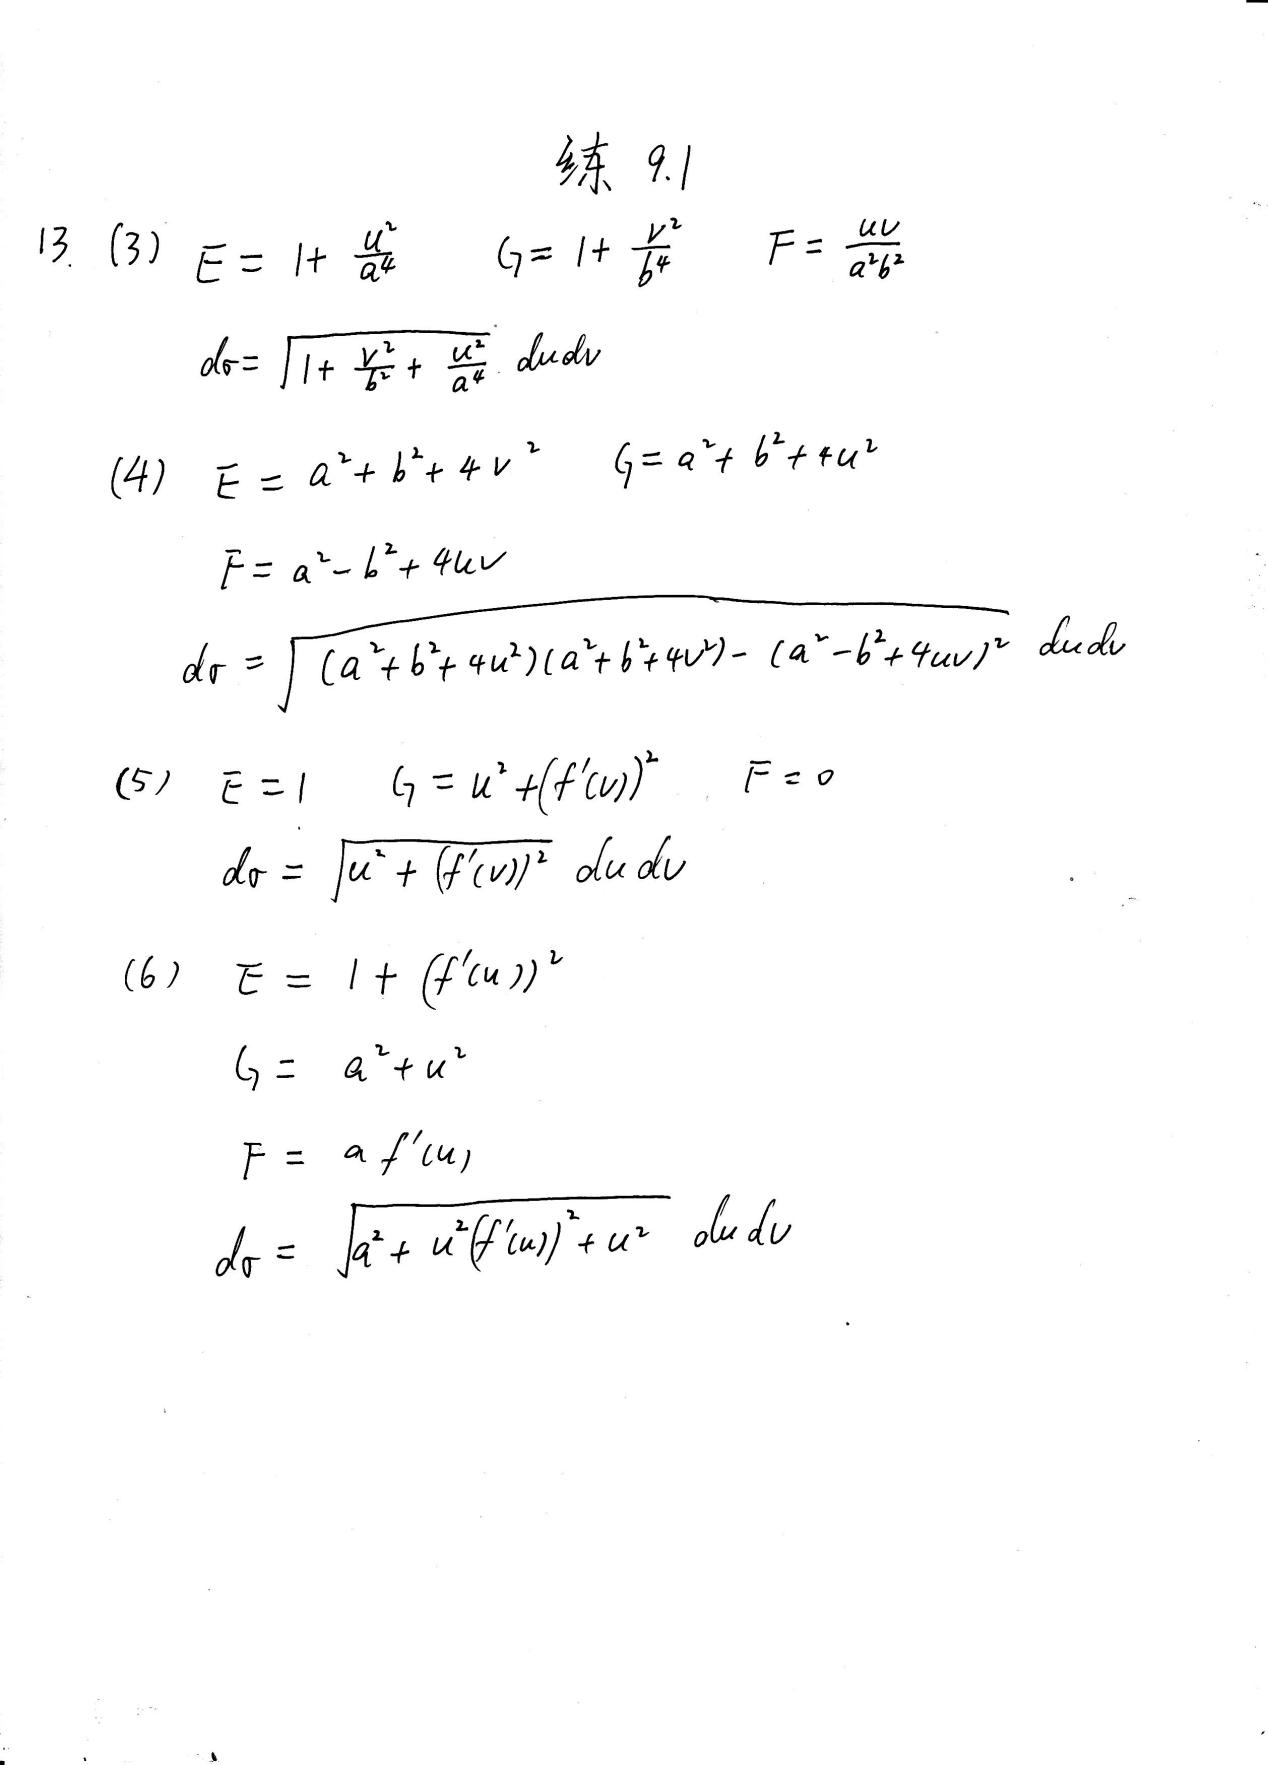 练 9.1
13. (3) E = 1+ u²/a⁴ G = 1+ v²/b⁴ F = uv/a²b²
dσ = √(1+ v²/b² + u²/a⁴) dudv
(4) E = a²+b²+4v² G = a²+b²+4u²
F = a²-b²+4uv
dσ = √((a²+b²+4u²)(a²+b²+4v²)-(a²-b²+4uv)²) dudv
(5) E = 1 G = u²+(f'(v))² F = 0
dσ = √(u²+(f'(v))²) dudv
(6) E = 1+(f'(u))²
G = a²+u²
F = a f'(u)
dσ = √(a²+u²(f'(u))²+u²) dudv